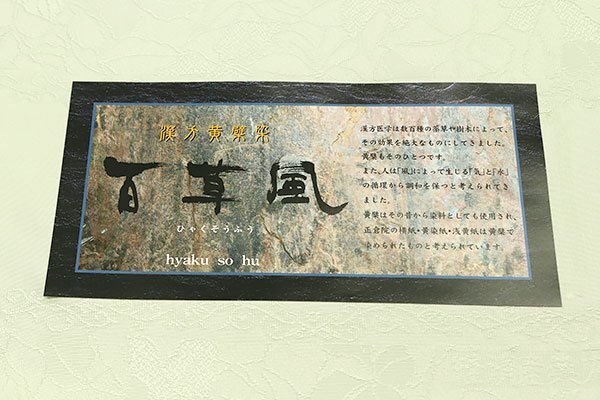 漢方黄檗染
百草風
ひゃくそうふう
hyaku so hu
漢方医学は数百種の薬草や樹木によって、
その効果を絶大なものにしてきました。
黄檗もそのひとつです。
また、人は「風」によって生じる「気」と「水」
の循環から調和を保つと考えられてき
ました。
黄檗はその昔から染料としても使用され、
正倉院の横紙・黄染紙・浅黄紙は黄檗で
染められたものと考えられています。